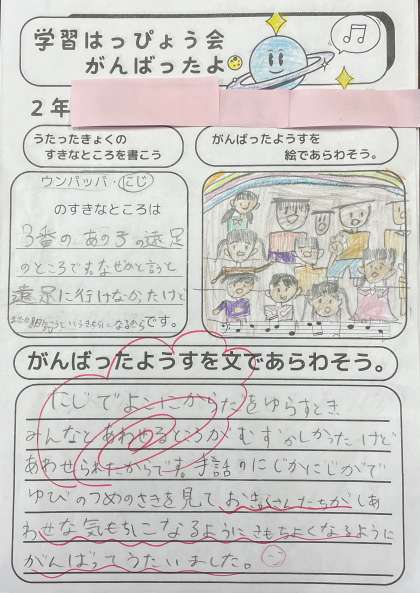 学習はっぴょう会
がんばったよ
2年
うたったきょくの
すきなところを書こう
がんばったようすを
絵であらわそう。
ウンパッパ・にじ
のすきなところは
3番のあの子の遠足
のところです。なぜかと言うと
遠足に行けなかったけど
です。
がんばったようすを文であらわそう。
にじでよこにからだをゆらすとき
みんなとあわせるところがむずかしかったけど
あわせられたからです。手話のにじがにじがで
ゆびのつめのさきを見ておきゃくさんたちがしあ
わせな気もちになるようにきもちよくなるように
がんばってうたいました。